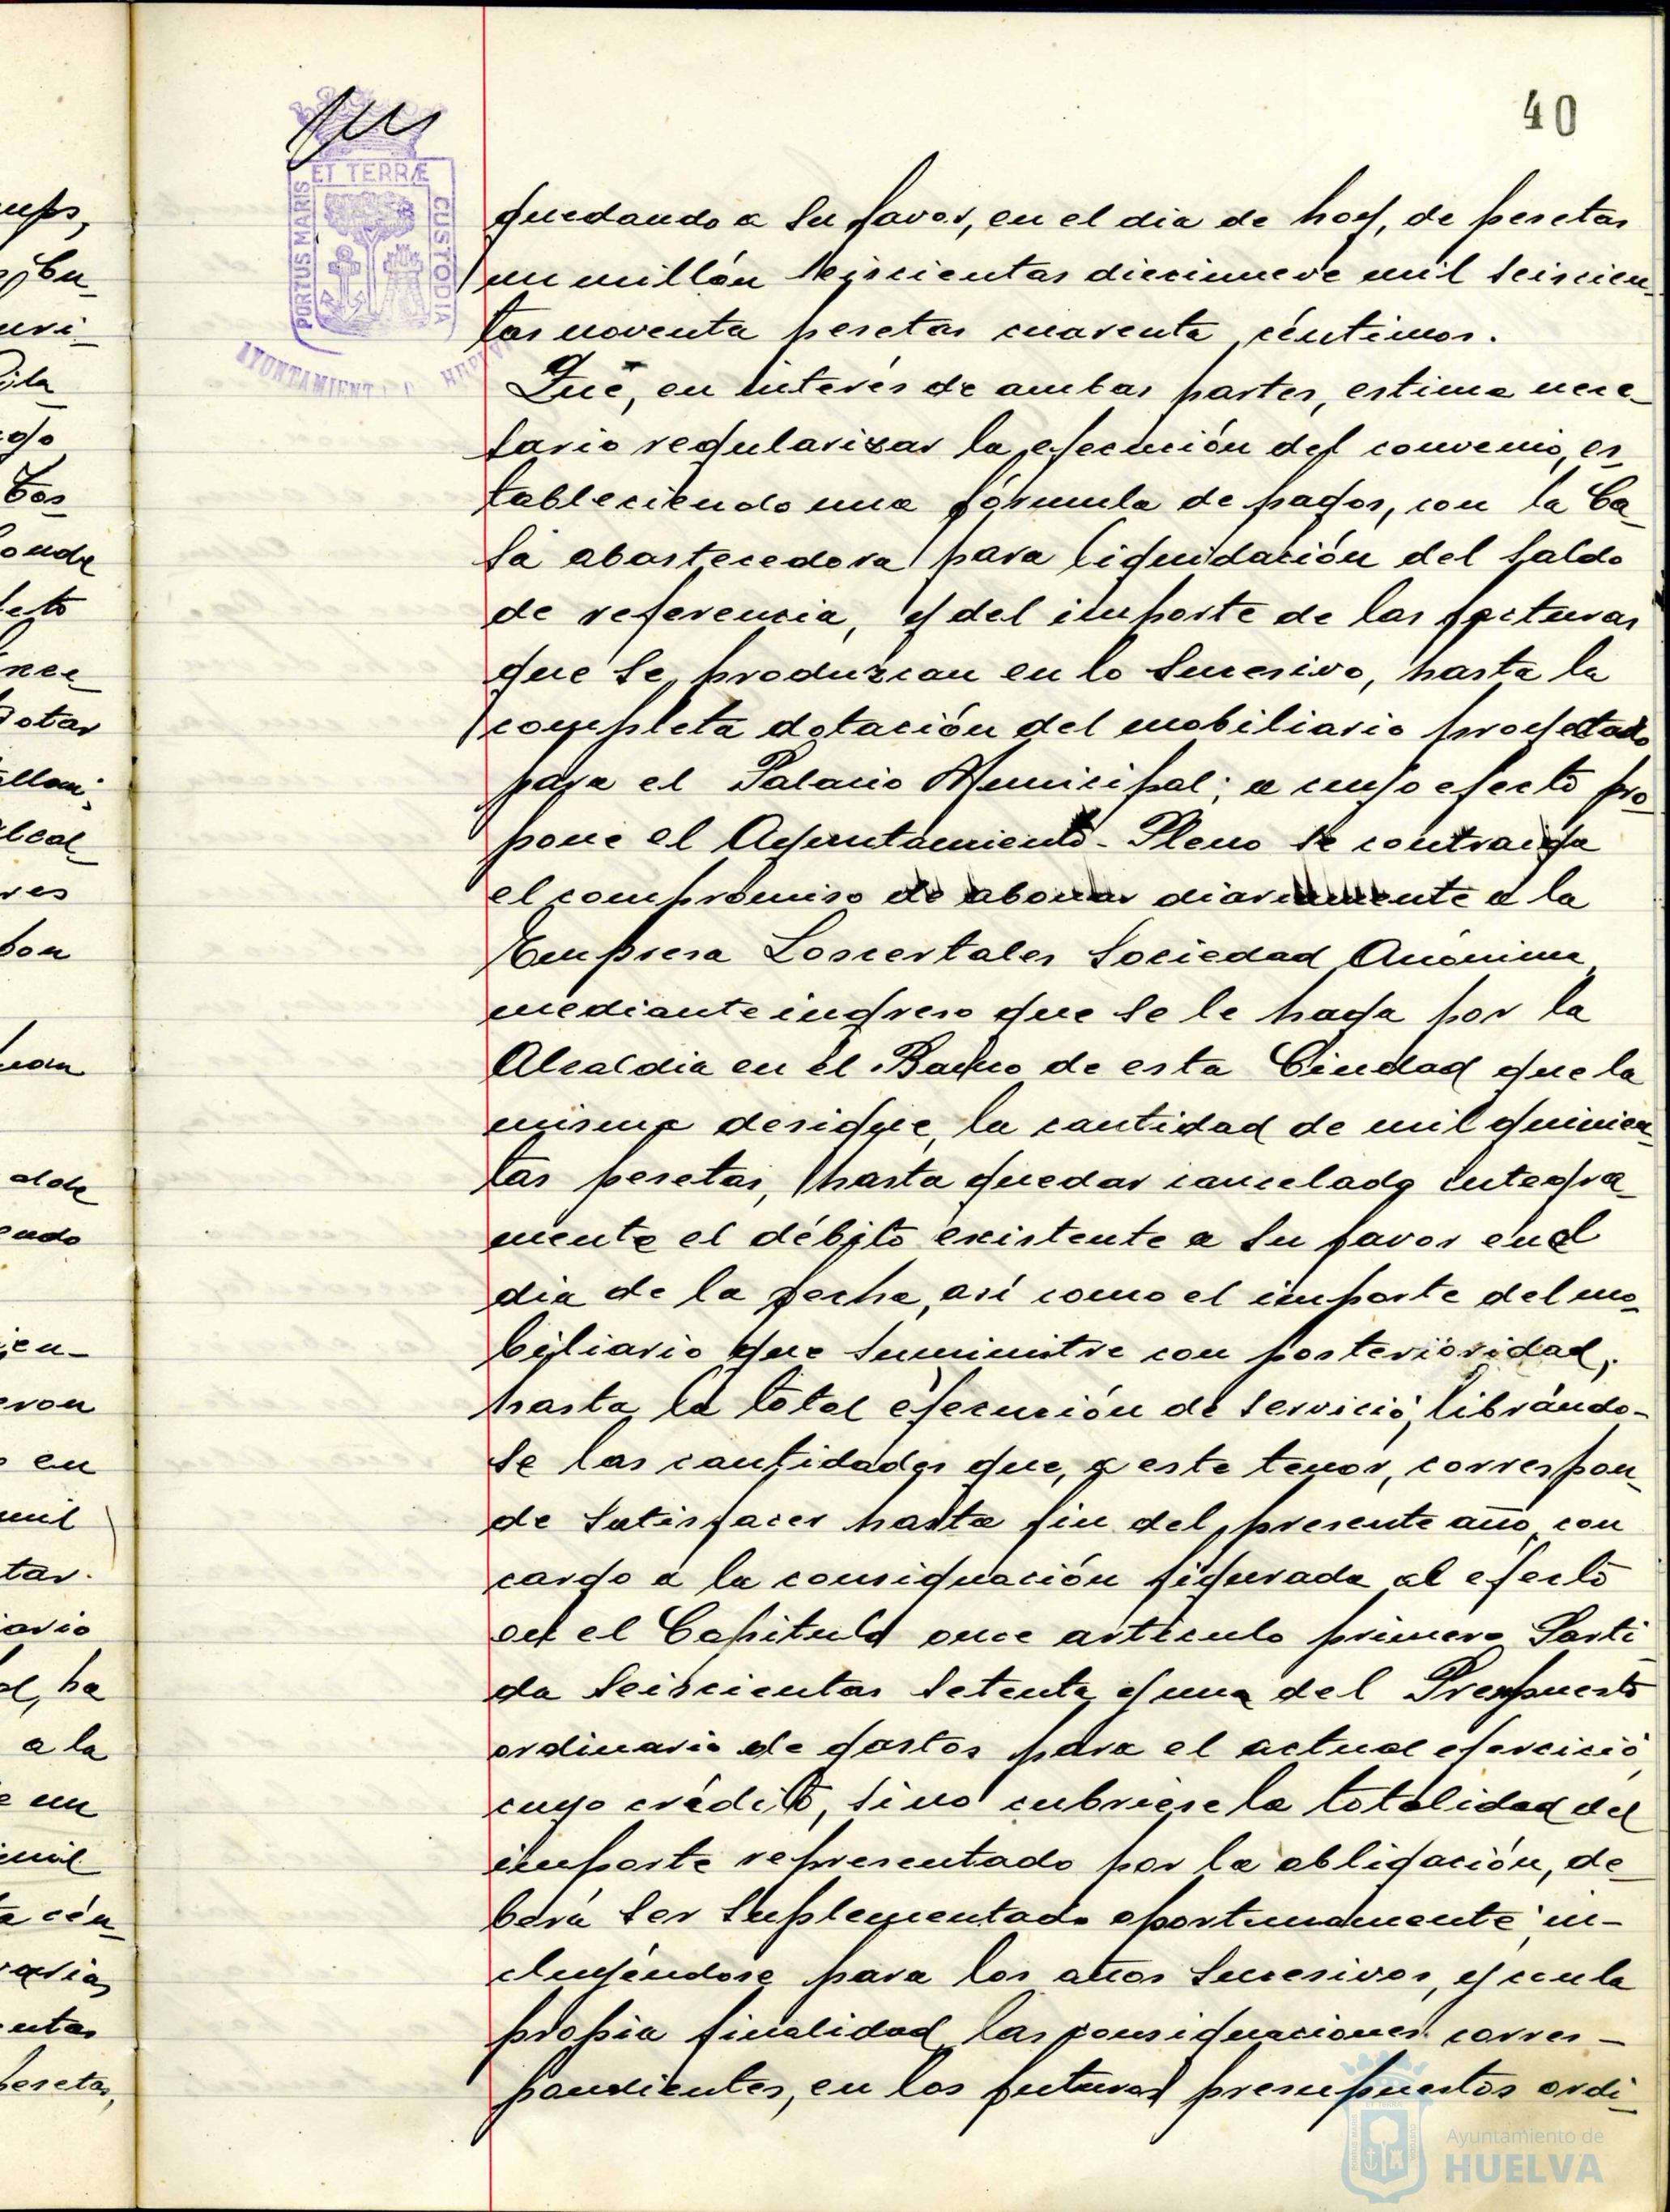 40
PORTUS MARIS
ET TERRÆ
CUSTODIA
AYUNTAMIENTO
quedando a su favor, en el dia de hoy, de pesetas
un millón seiscientas diecinueve mil seiscien-
tas noventa pesetas cuarenta céntimos.
Que, en interés de ambas partes, estima nece-
sario regularizar la ejecución del convenio, es-
tableciendo una fórmula de pagos, con la Ca-
sa abastecedora para liquidación del saldo
de referencia, y del importe de las facturas
que se produzcan en lo sucesivo, hasta la
completa dotación del mobiliario proyectado
para el Palacio Municipal; a cuyo efecto pro-
pone el Ayuntamiento-Pleno se contraiga
el compromiso de abonar diariamente a la
Empresa Loscertales Sociedad Anónima,
mediante ingreso que se le haga por la
Alcaldia en el Banco de esta Ciudad que la
misma designe, la cantidad de mil quinien-
tas pesetas, hasta quedar cancelado integra-
mente el débito existente a su favor en el
dia de la fecha, así como el importe del mo-
biliario que suministre con posterioridad,
hasta la total ejecución de servicio, librándo-
se las cantidades que, a este tenor, correspon-
de satisfacer hasta fin del presente año, con
cargo a la consignación figurada al efecto
en el Capitulo once articulo primero Parti-
da seiscientas setenta y una del Presupuesto
ordinario de gastos para el actual ejercicio,
cuyo crédito, si no cubriese la totalidad del
importe representado por la obligación, de-
berá ser suplementado oportunamente, in-
cluyéndose para los años sucesivos, y con la
propia finalidad las consignaciones corres-
pondientes, en los futuros presupuestos ordi-
ups,
uri-
Pila
onde
otar
alcal
res
ndo
ien-
eron
o en
mil
tar.
ario
ha
a la
mil
a cén-
entas
pesetas,
Ayuntamiento de
HUELVA